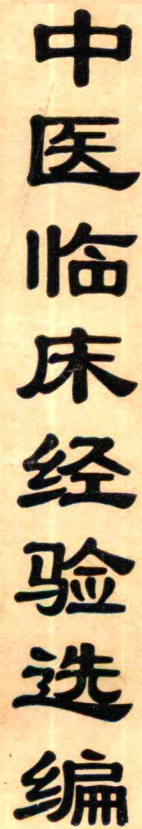 中医临床经验选编